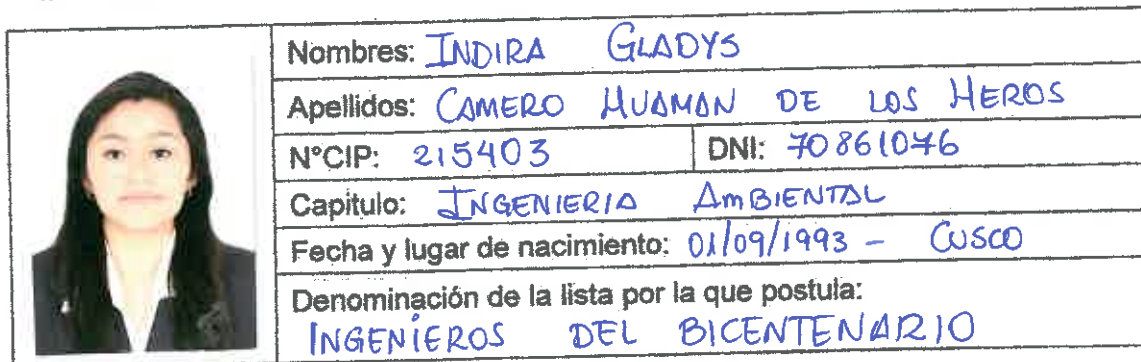 Nombres: INDIRA GLADYS
Apellidos: CAMERO HUAMAN DE LOS HEROS
N°CIP: 215403 DNI: 70861076
Capitulo: INGENIERIA AMBIENTAL
Fecha y lugar de nacimiento: 01/09/1993 - CUSCO
Denominación de la lista por la que postula:
INGENIEROS DEL BICENTENARIO